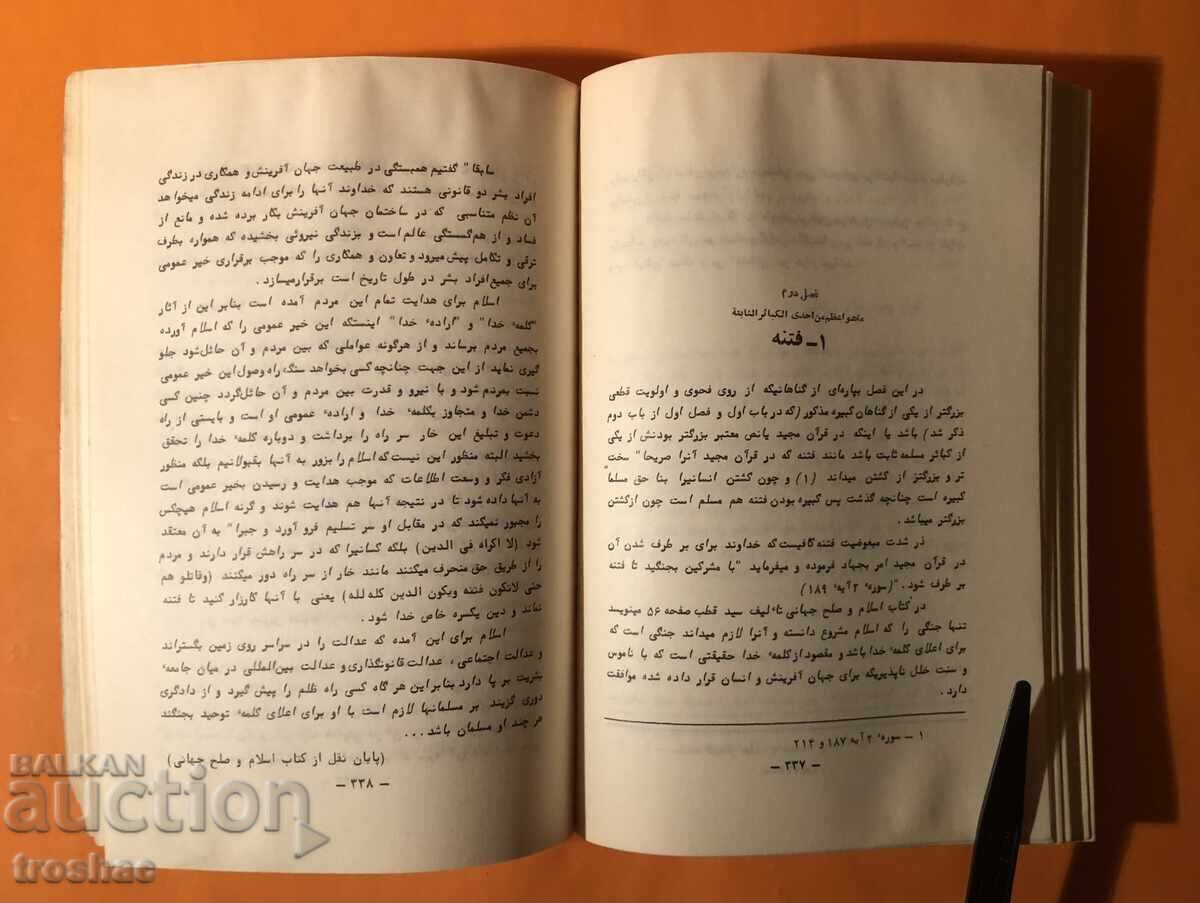 فصل دوم
ماهو اعظم من احدی الکبائر الثابتة
۱ـ فتنه
در این فصل بپاره‌ای از گناهانیکه از روی فحوی و اولویت قطعی
بزرگتر از یکی از گناهان کبیره مذکور (که در باب اول و فصل اول از باب دوم
ذکر شد) باشد یا اینکه در قرآن مجید یانص معتبر بزرگتر بودنش از یکی
از کبائر مسلمه ثابت باشد مانند فتنه که در قرآن مجید آنرا صریحا" سخت
تر و بزرگتر از کشتن میداند (۱) و چون کشتن انسانیرا بنا حق مسلما"
کبیره است چنانچه گذشت پس کبیره بودن فتنه هم مسلم است چون ازکشتن
بزرگتر میباشد.
در شدت مبغوضیت فتنه کافیست که خداوند برای بر طرف شدن آن
در قرآن مجید امر بجهاد فرموده و میفرماید "با مشرکین بجنگید تا فتنه
بر طرف شود."(سوره‌ٔ ۲ آیه‌ٔ ۱۸۹)
در کتاب اسلام و صلح جهانی تاٴلیف سید قطب صفحه ۵۶ مینویسد
تنها جنگی را که اسلام مشروع دانسته و آنرا لازم میداند جنگی است که
برای اعلای کلمه‌ٔ خدا باشد و مقصود از کلمه‌ٔ خدا حقیقتی است که با ناموس
و سنت خلل ناپذیریکه برای جهان آفرینش و انسان قرار داده شده موافقت
دارد.
۱ – سوره‌ٔ ۲ آیه ۱۸۷ و ۲۱۴
– ۳۳۷ –
سابقا" گفتیم همبستگی در طبیعت جهان آفرینش و همکاری در زندگی
افراد بشر دو قانونی هستند که خداوند آنها را برای ادامه زندگی میخواهد
آن نظم متناسبی که در ساختمان جهان آفرینش بکار برده شده و مانع از
فساد و از هم‌گستگی عالم است و بزندگی نیروئی بخشیده که همواره بطرف
ترقی و تکامل پیش میرود و تعاون و همکاری را که موجب برقراری خیر عمومی
برای جمیع افراد بشر در طول تاریخ است برقرارمیسازد.
اسلام برای هدایت تمام این مردم آمده است بنابر این از آثار
"کلمه‌ٔ خدا" و "اراده‌ٔ خدا" اینستکه این خیر عمومی را که اسلام آورده
بجمیع مردم برساند و از هرگونه عواملی که بین مردم و آن حائل‌شود جلو
گیری نماید از این جهت چنانچه کسی بخواهد سنگ راه وصول این خیر عمومی
نسبت بمردم شود و با نیرو و قدرت بین مردم و آن حائل‌گردد چنین کسی
دشمن خدا و متجاوز بکلمه‌ٔ خدا و اراده‌ٔ عمومی او است و بایستی از راه
دعوت و تبلیغ این خار سر راه را برداشت و دوباره کلمه‌ٔ خدا را تحقق
بخشید البته منظور این نیست‌که اسلام را بزور به آنها بقبولانیم بلکه منظور
آزادی فکر و وسعت اطلاعات که موجب هدایت و رسیدن بخیر عمومی است
به آنها داده شود تا در نتیجه آنها هم هدایت شوند و گرنه اسلام هیچکس
را مجبور نمیکند که در مقابل او سر تسلیم فرو آورد و جبرا" به آن معتقد
شود (لا اکراه فی الدین) بلکه کسانیرا که در سر راهش قرار دارند و مردم
را از طریق حق منحرف میکنند مانند خار از سر راه دور میکنند (وقاتلو هم
حتی لاتکون فتنه ویکون الدین کله لله) یعنی با آنها کارزار کنید تا فتنه
نماند و دین یکسره خاص خدا شود.
اسلام برای این آمده که عدالت را در سراسر روی زمین بگستراند
و عدالت اجتماعی، عدالت قانونگذاری و عدالت بین‌المللی در میان جامعه‌ٔ
بشریت بر پا دارد بنابراین هر گاه کسی راه ظلم را پیش گیرد و از دادگری
دوری گزیند بر مسلمانها لازم است با او برای اعلای کلمه‌ٔ توحید بجنگند
هر چند او مسلمان باشد...
(پایان نقل از کتاب اسلام و صلح جهانی)
– ۳۳۸ –
BALKAN
auction
troshac